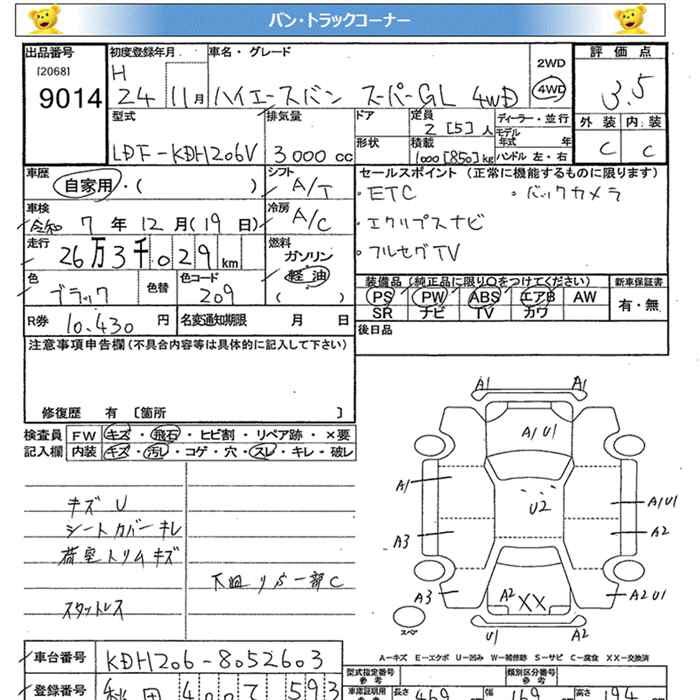 バン・トラックコーナー
出品番号 初度登録年月 車名・グレード 2WD 評価点
[2068] H 4WD
9014 24年 11月 ハイエースバン スーパーGL 4WD 3.5
型式 排気量 ドア 定員 2 [5] 人 ディーラー・並行 外装 内装
モデル年式 年
LDF-KDH206V 3000cc 形状 積載 1000 [850] kg ハンドル 左・右 C C
車歴 自家用・( ) シフト A/T
セールスポイント (正常に機能するものに限ります)
・ETC ・バックカメラ
・エクリプスナビ
・フルセグTV
車検 令和 7年 12月 (19日) 冷房 A/C
走行 26万3千029km 燃料 ガソリン 軽油 ( )
色 ブラック 色替 色コード 209
装備品 (純正品に限り○をつけてください) 新車保証書
PS PW ABS エアB AW 有・無
SR ナビ TV カワ
R券 10,430円 名変通知期限 月 日 後日品
注意事項申告欄 (不具合内容等は具体的に記入して下さい)
修復歴 有 [箇所 ]
検査員 FW キズ・飛石・ヒビ割・リペア跡・×要
記入欄 内装 キズ・汚レ・コゲ・穴・スレ・キレ・破レ
キズ U
シートカバーキレ
荷室トリムキズ
下廻りS一部C
スタットレス
A1 A1
A1U1
A1 U2 A1U1
A3 A2
A3 A2 XX A2U1
スペア U1 A2
A-キズ E-エクボ U-凹み W-補修跡 S-サビ C-腐食 XX-交換済
車台番号 KDH206-8052603
登録番号 秋田 400 て 593
型式指定番号 参考 類別区分番号 参考
車庫証明用 参考 長さ 469 cm 幅 169 cm 高さ 194 cm